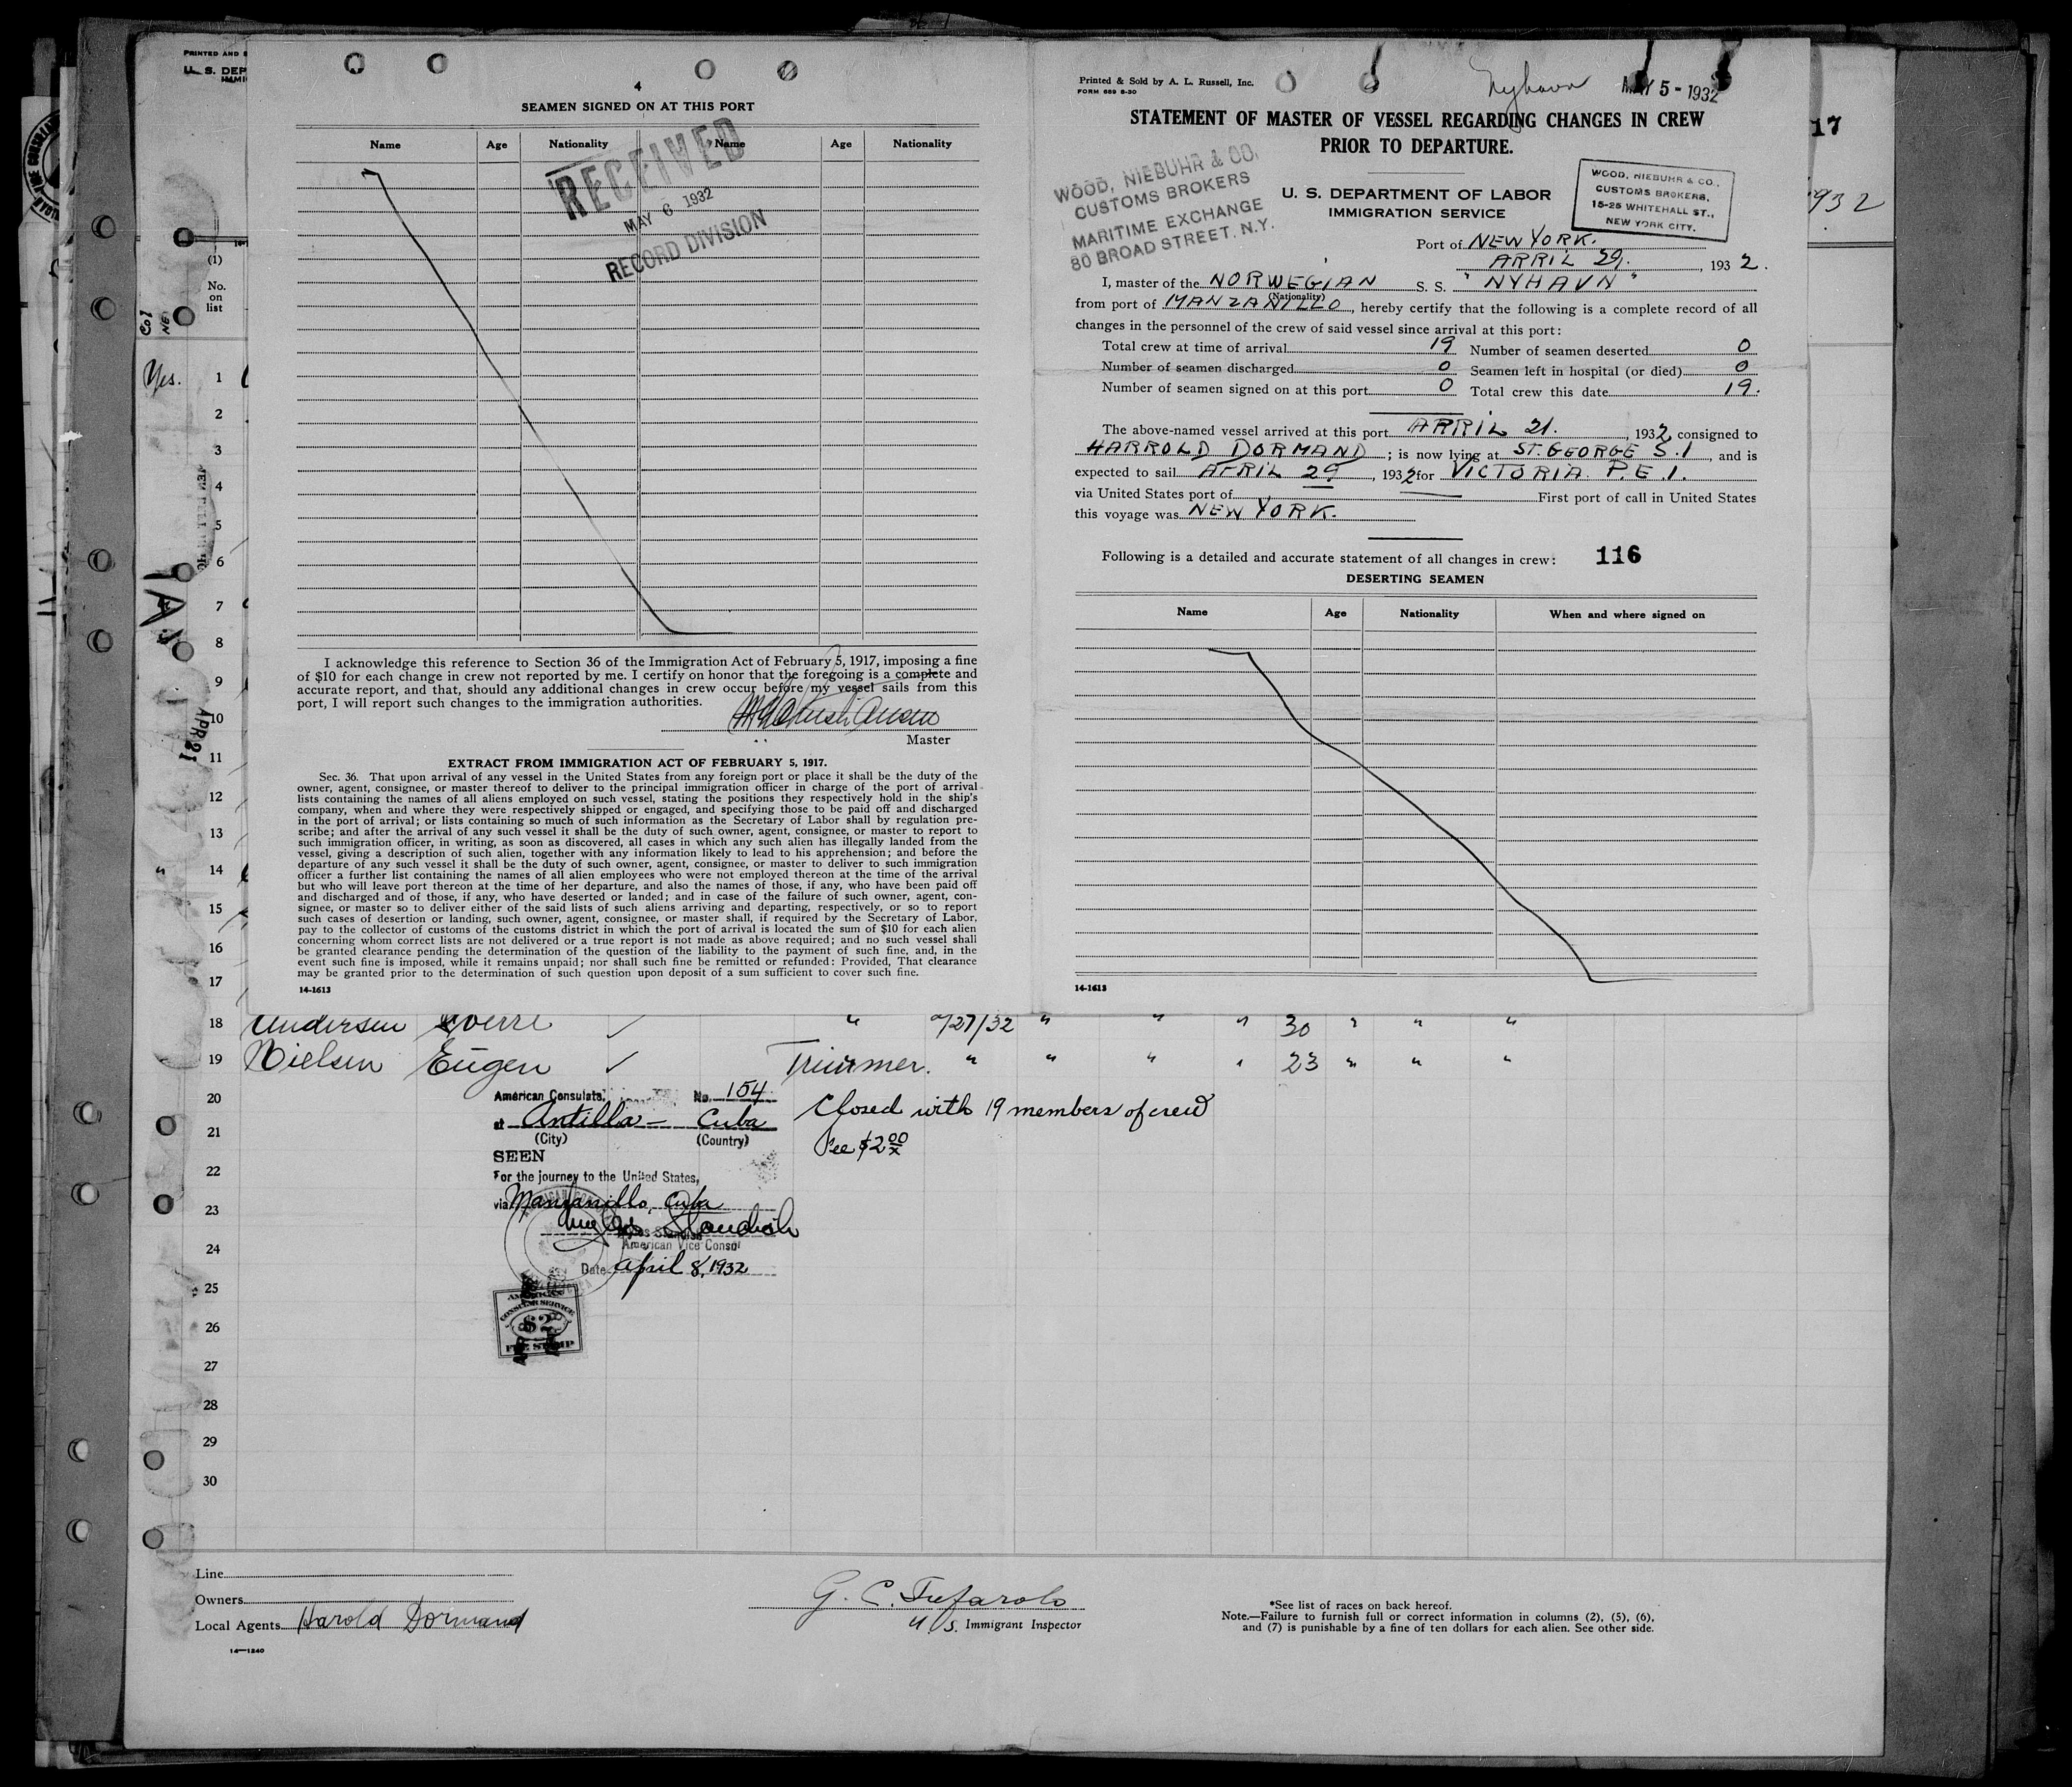 PRINTED AND
U. S. DEP
IMMI
4
SEAMEN SIGNED ON AT THIS PORT
Name Age Nationality Name Age Nationality
RECEIVED
MAY 6 1932
RECORD DIVISION
I acknowledge this reference to Section 36 of the Immigration Act of February 5, 1917, imposing a fine
of $10 for each change in crew not reported by me. I certify on honor that the foregoing is a complete and
accurate report, and that, should any additional changes in crew occur before my vessel sails from this
port, I will report such changes to the immigration authorities.
Master
EXTRACT FROM IMMIGRATION ACT OF FEBRUARY 5, 1917.
Sec. 36. That upon arrival of any vessel in the United States from any foreign port or place it shall be the duty of the
owner, agent, consignee, or master thereof to deliver to the principal immigration officer in charge of the port of arrival
lists containing the names of all aliens employed on such vessel, stating the positions they respectively hold in the ship's
company, when and where they were respectively shipped or engaged, and specifying those to be paid off and discharged
in the port of arrival; or lists containing so much of such information as the Secretary of Labor shall by regulation pre-
scribe; and after the arrival of any such vessel it shall be the duty of such owner, agent, consignee, or master to report to
such immigration officer, in writing, as soon as discovered, all cases in which any such alien has illegally landed from the
vessel, giving a description of such alien, together with any information likely to lead to his apprehension; and before the
departure of any such vessel it shall be the duty of such owner, agent, consignee, or master to deliver to such immigration
officer a further list containing the names of all alien employees who were not employed thereon at the time of the arrival
but who will leave port thereon at the time of her departure, and also the names of those, if any, who have been paid off
and discharged and of those, if any, who have deserted or landed; and in case of the failure of such owner, agent, con-
signee, or master so to deliver either of the said lists of such aliens arriving and departing, respectively, or so to report
such cases of desertion or landing, such owner, agent, consignee, or master shall, if required by the Secretary of Labor,
pay to the collector of customs of the customs district in which the port of arrival is located the sum of $10 for each alien
concerning whom correct lists are not delivered or a true report is not made as above required; and no such vessel shall
be granted clearance pending the determination of the question of the liability to the payment of such fine, and, in the
event such fine is imposed, while it remains unpaid; nor shall such fine be remitted or refunded: Provided, That clearance
may be granted prior to the determination of such question upon deposit of a sum sufficient to cover such fine.
14-1613
Printed & Sold by A. L. Russell, Inc.
FORM 689 8-30
Nyhavn
MAY 5 - 1932
STATEMENT OF MASTER OF VESSEL REGARDING CHANGES IN CREW
PRIOR TO DEPARTURE.
WOOD, NIEBUHR & CO.
CUSTOMS BROKERS
MARITIME EXCHANGE
80 BROAD STREET, N.Y.
U. S. DEPARTMENT OF LABOR
IMMIGRATION SERVICE
WOOD, NIEBUHR & CO.,
CUSTOMS BROKERS,
15-25 WHITEHALL ST.,
NEW YORK CITY.
Port of NEW YORK.
APRIL 29. , 1932.
I, master of the NORWEGIAN S. S. "NYHAVN"
(Nationality)
from port of MANZANILLO, hereby certify that the following is a complete record of all
changes in the personnel of the crew of said vessel since arrival at this port:
Total crew at time of arrival 19 Number of seamen deserted 0
Number of seamen discharged 0 Seamen left in hospital (or died) 0
Number of seamen signed on at this port 0 Total crew this date 19.
The above-named vessel arrived at this port APRIL 21. , 1932, consigned to
HARROLD DORMAND ; is now lying at ST. GEORGE S.I , and is
expected to sail APRIL 29 , 1932 for VICTORIA P.E.I.
via United States port of First port of call in United States
this voyage was NEW YORK.
Following is a detailed and accurate statement of all changes in crew: 116
DESERTING SEAMEN
Name Age Nationality When and where signed on
14-1613
17
1932
(1)
No.
on
list
Yes. 1
2
3
4
5
6
7
8
9
10
APR 21
11
12
13
14
15
16
17
18 Andersen Sverre ✓ " 27/32 " " " 30 " " "
19 Nielsen Eugen ✓ Trimmer. " " " " 23 " " "
20
21
22
23
24
25
26
27
28
29
30
American Consulate, No. 154
at Antilla - Cuba
(City) (Country)
Closed with 19 members of crew
Fee $2.00
SEEN
For the journey to the United States,
via Manzanillo, Cuba
Myles Standish
Myles Standish
American Vice Consul
Date April 8, 1932
AMERICAN
CONSULAR SERVICE
$2
FEE STAMP
Line
Owners
Local Agents Harold Dormand
14-1240
G. C. Tufarolo
U.S. Immigrant Inspector
*See list of races on back hereof.
Note.—Failure to furnish full or correct information in columns (2), (5), (6),
and (7) is punishable by a fine of ten dollars for each alien. See other side.